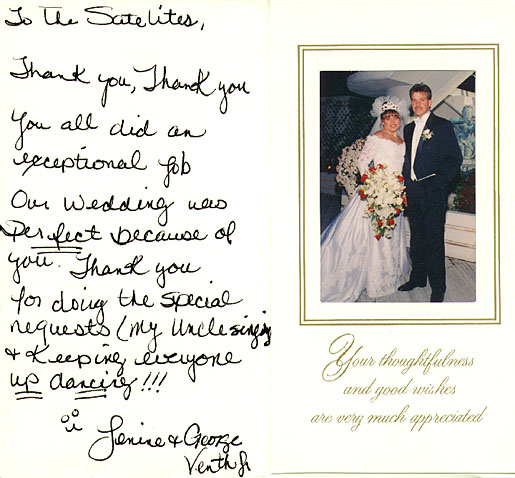 To The Satelites,
Thank you, Thank you
You all did an
exceptional job
Our Wedding was
Perfect because of
you. Thank you
for doing the special
requests (my Uncle singing
& Keeping everyone
up dancing!!!
Jenine & George
Venth Jr
Your thoughtfulness
and good wishes
are very much appreciated